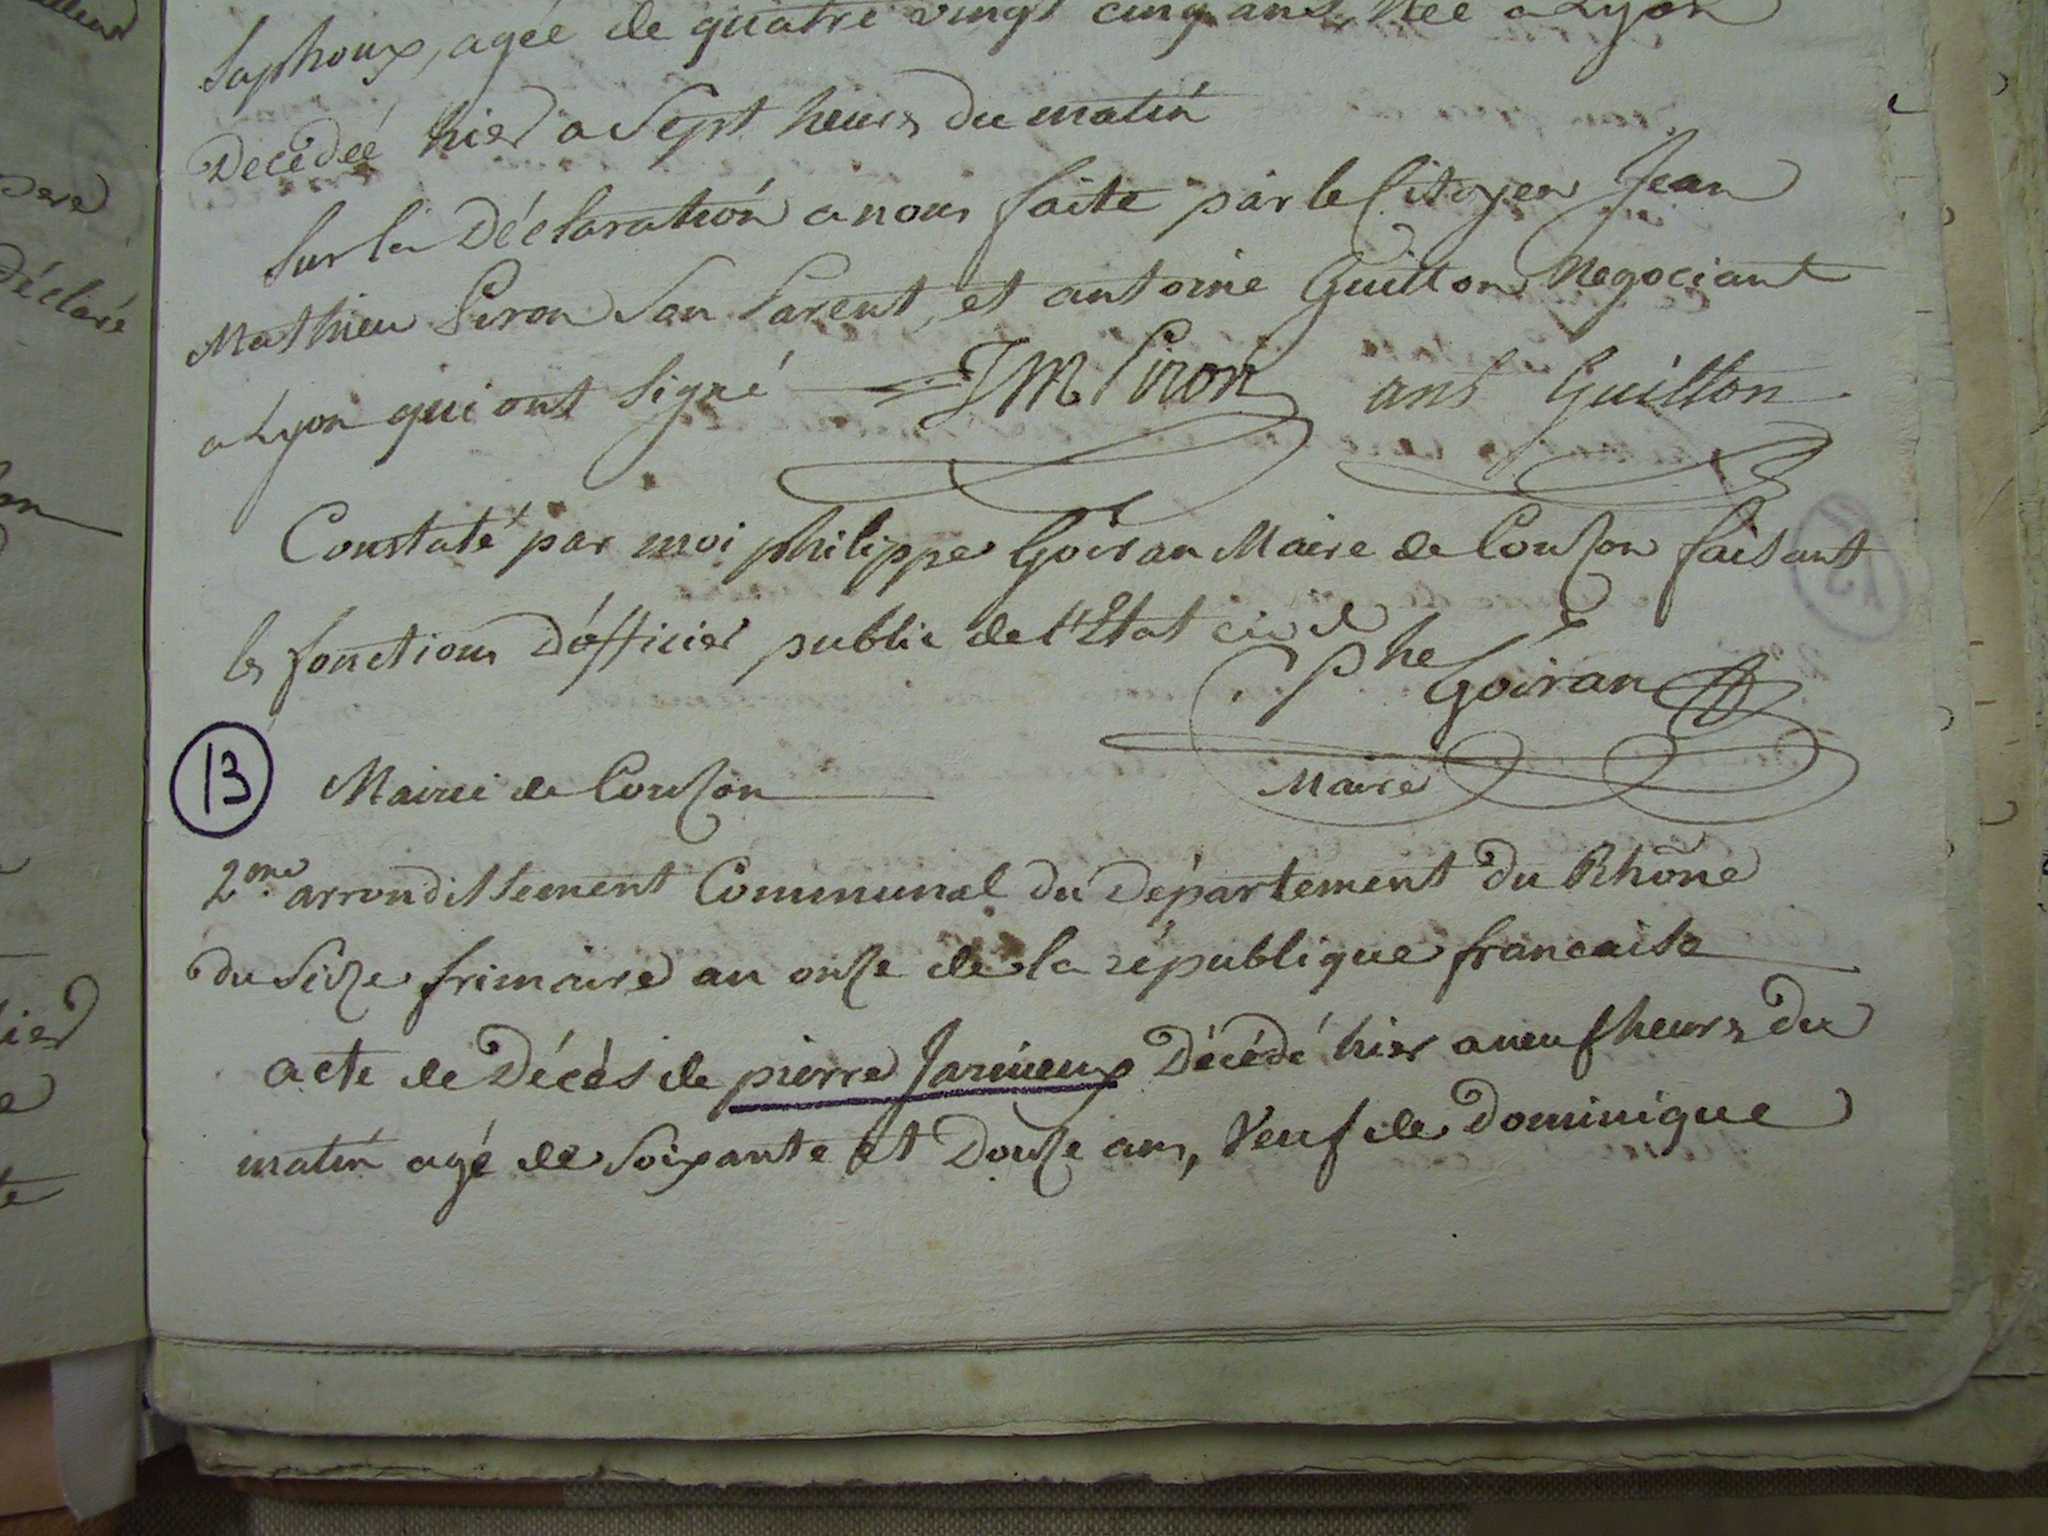 Saphoux, agée de quatre vingt cinq ans, Née a Lyon
Decedéé hier a Sept heures du matin
Sur la Déclaration a nous faite par le Citoyen Jean
Mathieu Piron Son Parent, et antoine Guitton Negociant
a Lyon qui ont Signé JM Piron ant Guitton
Constaté par moi philippe Goiran Maire de Couzon faisant
les fonctions D'officier public de l'Etat civil
phe Goiran
Maire
13
Mairie de Couzon
2me arrondissement Communal du Département du Rhône
du Seize frimaire an onze de la république francaise
acte de Décès de pierre Jarnieux Décédé hier a neuf heures du
matin agé de Soixante et Douze ans, Veuf de Dominique
Déclaré